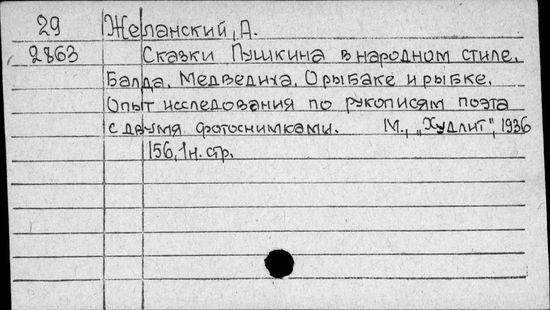 29 Желанский, А.
2863 Сказки Пушкина в народном стиле.
Балда. Медведиха. О рыбаке и рыбке.
Опыт исследования по рукописям поэта
с двумя фотоснимками. М., „Худлит", 1936
156, 1 н. стр.